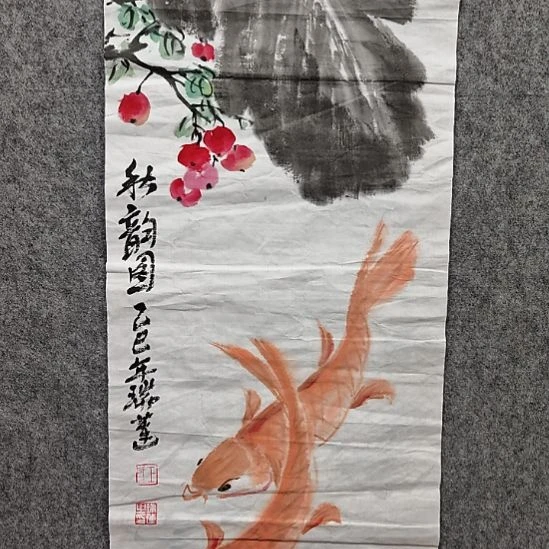 秋韵图乙巳年瑞莲